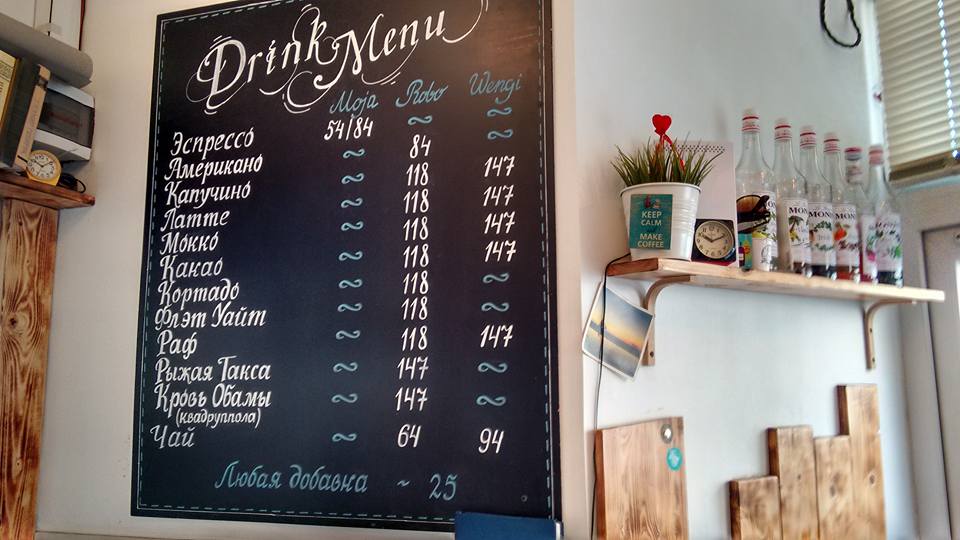 Drink Menu
Moja Robo Wengi
Эспрессо 54/84 ~ ~
Американо ~ 84 ~
Капучино ~ 118 147
Латте ~ 118 147
Мокко ~ 118 147
Какао ~ 118 147
Кортадо ~ 118 ~
Флэт Уайт ~ 118 ~
Раф ~ 118 147
Рыжая Такса ~ 147 ~
Кровь Обамы ~ 147 ~
(квадруппола)
Чай ~ 64 94
Любая добавка ~ 25
KEEP
CALM
MAKE
COFFEE